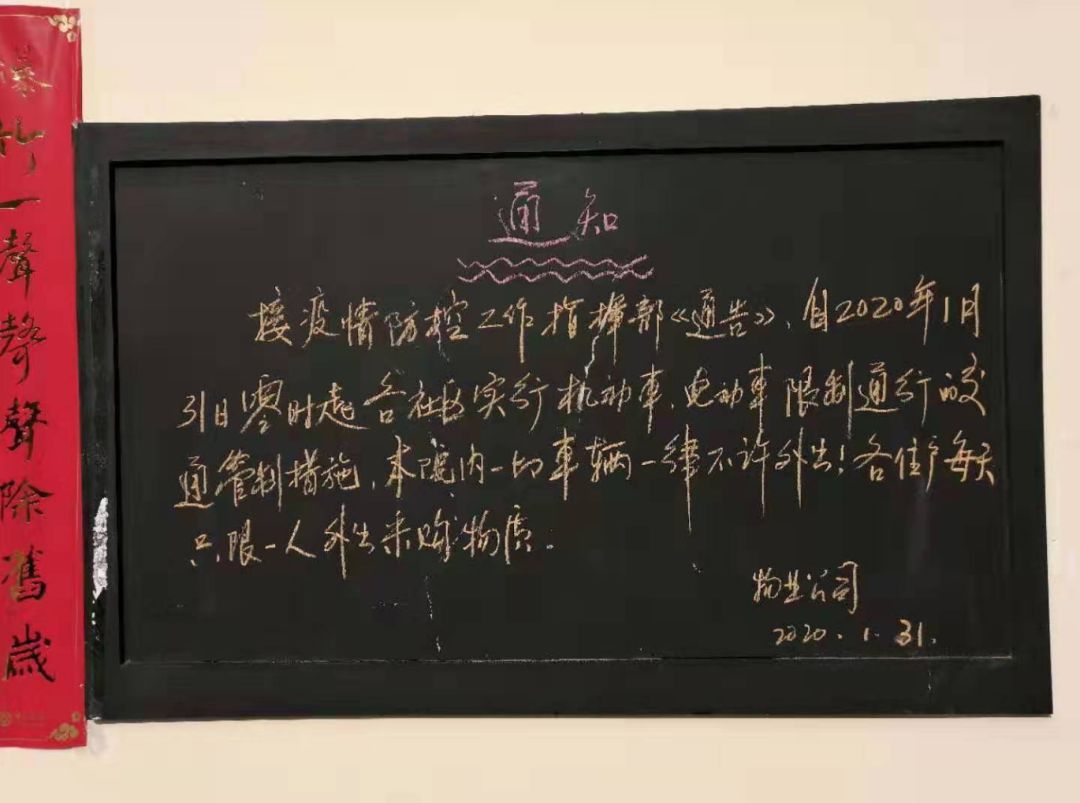 爆竹一聲聲聲除舊歲
通知
接疫情防控工作指挥部《通告》、自2020年1月
31日零时起各社区实行机动车、电动车限制通行的交
通管制措施,本院内一切车辆一律不许外出!各住户每天
只限一人外出采购物质.
物业公司
2020.1.31.